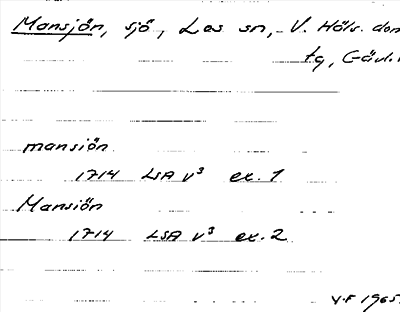 Mansjön, sjö, Los sn, V. Häls. dom
tg, Gävl.
mansiön
1714 LSA v³ ex. 1
Mansiön
1714 LSA v³ ex. 2
V.F 1965